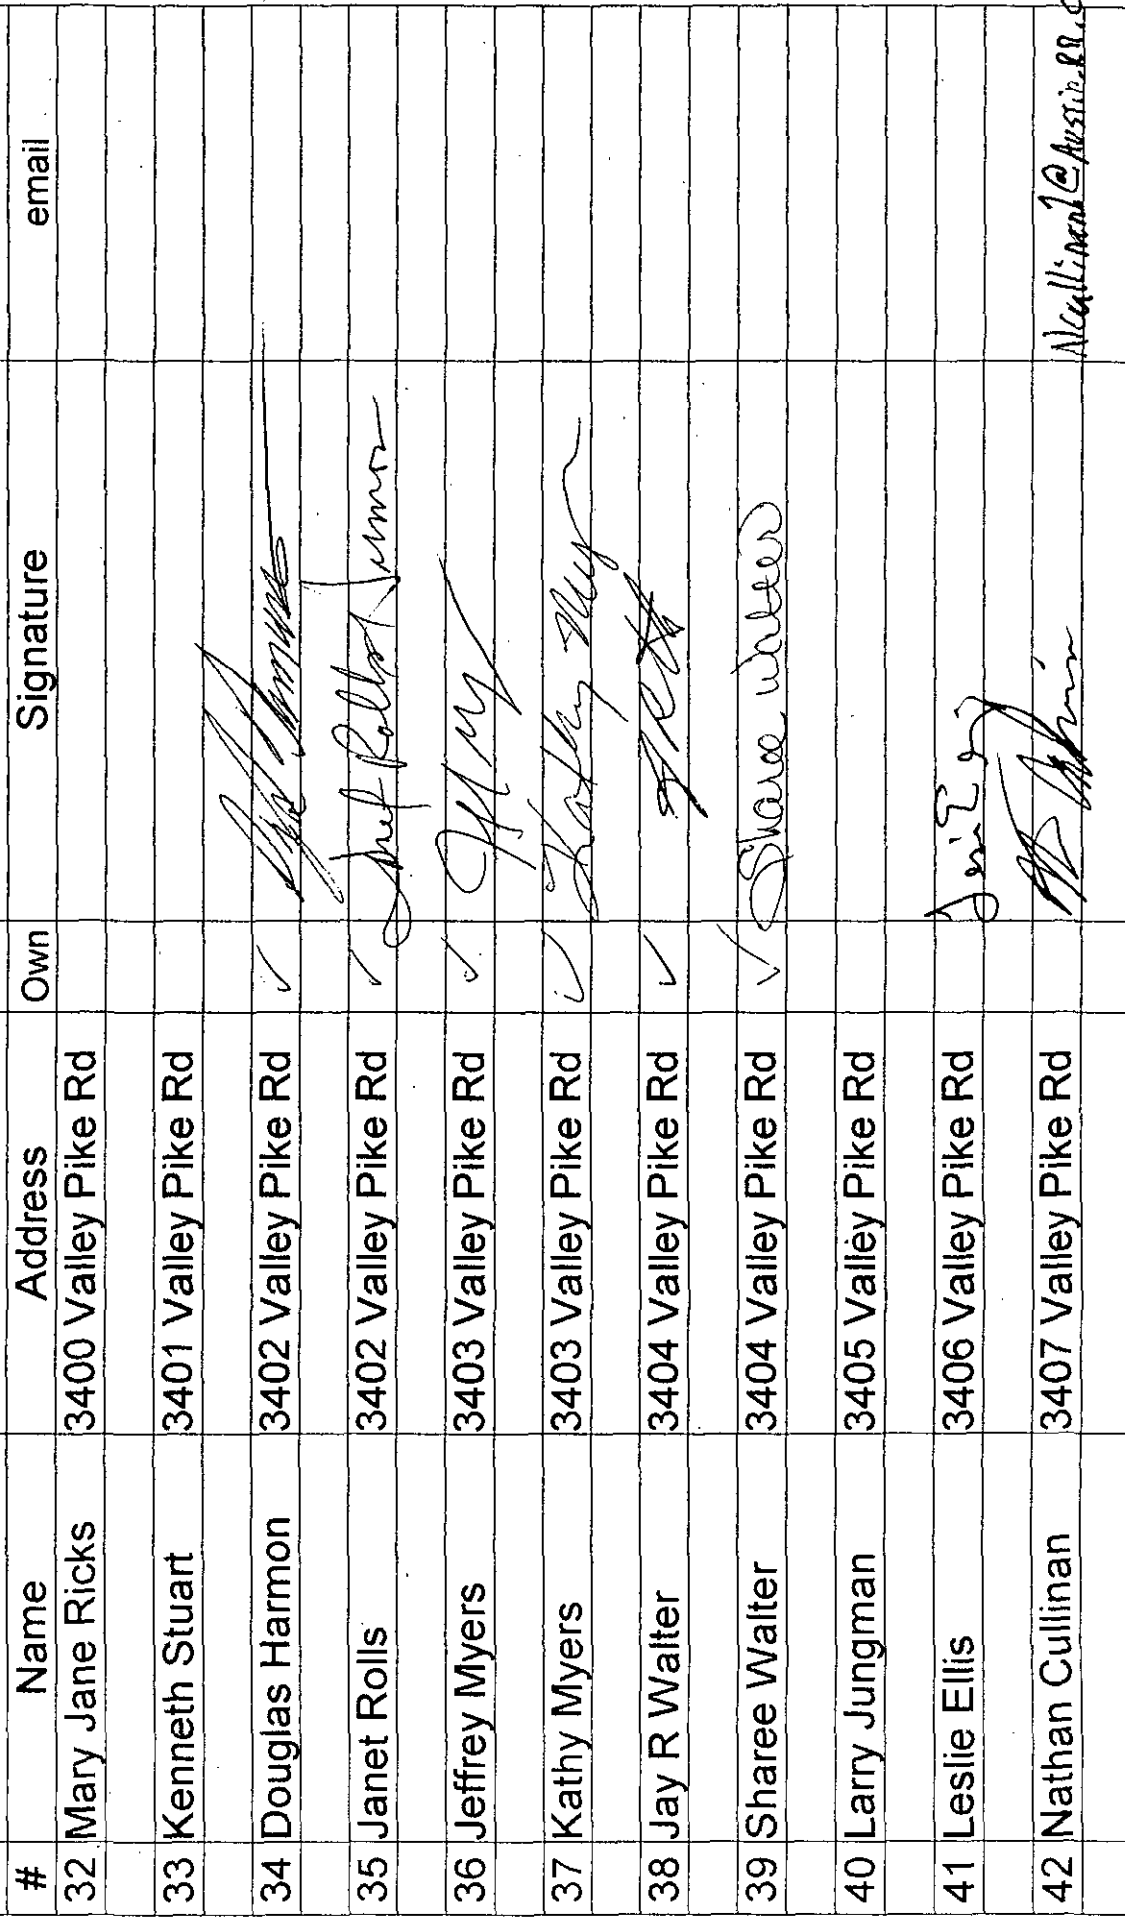 # Name Address Own Signature email
32 Mary Jane Ricks 3400 Valley Pike Rd
33 Kenneth Stuart 3401 Valley Pike Rd
34 Douglas Harmon 3402 Valley Pike Rd ✓
35 Janet Rolls 3402 Valley Pike Rd ✓ Janet Rolls Harmon
36 Jeffrey Myers 3403 Valley Pike Rd ✓
37 Kathy Myers 3403 Valley Pike Rd ✓ Kathy Myers
38 Jay R Walter 3404 Valley Pike Rd ✓
39 Sharee Walter 3404 Valley Pike Rd ✓ Sharee Walter
40 Larry Jungman 3405 Valley Pike Rd
41 Leslie Ellis 3406 Valley Pike Rd
42 Nathan Cullinan 3407 Valley Pike Rd Ncullinan1@Austin.RR.c